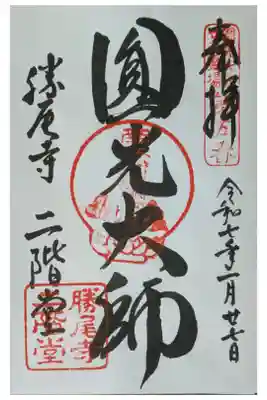 奉拝
令和七年一月廿七日
圓光大師
勝尾寺 二階堂
勝尾寺